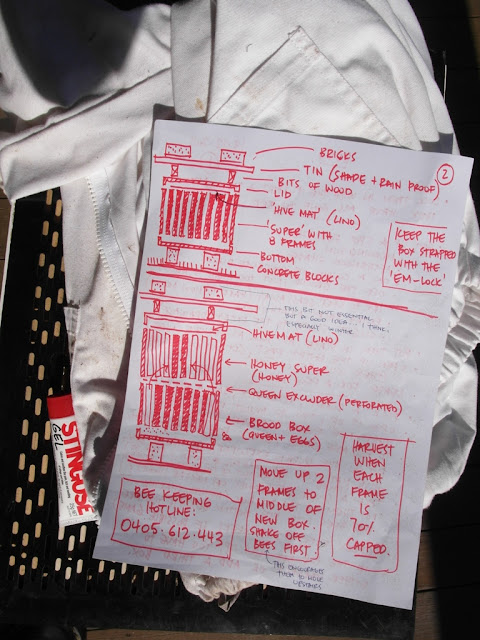 BRICKS
TIN (SHADE + RAIN PROOF)
2
BITS OF WOOD
LID
'HIVE MAT' (LINO)
'SUPER' WITH
8 FRAMES
BOTTOM
CONCRETE BLOCKS
KEEP THE
BOX STRAPPED
WITH THE
'EM-LOCK'
THIS BIT NOT ESSENTIAL
BUT A GOOD IDEA.. I THINK.
ESPECIALLY WINTER
HIVE MAT (LINO)
HONEY SUPER
(HONEY)
QUEEN EXCLUDER (PERFORATED)
BROOD BOX
(QUEEN + EGGS)
BEE KEEPING
HOTLINE:
0405.612.443
MOVE UP 2
FRAMES TO
MIDDLE OF
NEW BOX.
SHAKE OFF
BEES FIRST.
THIS ENCOURAGES
THEM TO MOVE
UPSTAIRS
HARVEST
WHEN
EACH
FRAME
IS
70%
CAPPED.
STINGOSE
GEL